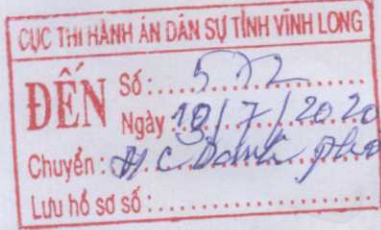 CỤC THI HÀNH ÁN DÂN SỰ TỈNH VĨNH LONG
ĐẾN
Số:.....572.....
Ngày 10/7/2020
Chuyển:
Lưu hồ sơ số:.....